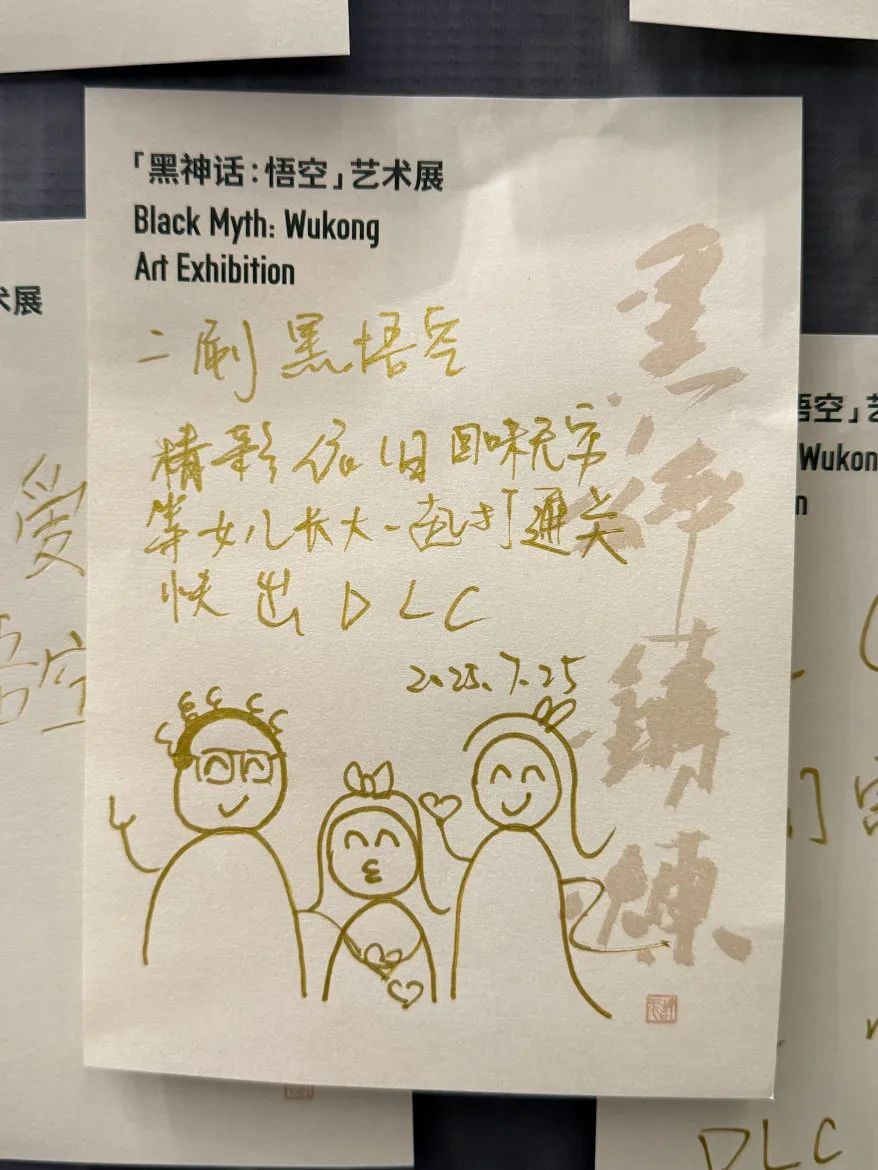 「黑神话:悟空」艺术展
Black Myth: Wukong
Art Exhibition
二刷 黑悟空
精彩依旧 回味无穷
等女儿长大一起打通关
快出DLC
2025.7.25
术展
爱
悟空
悟空」艺
Wukon
n
DLC